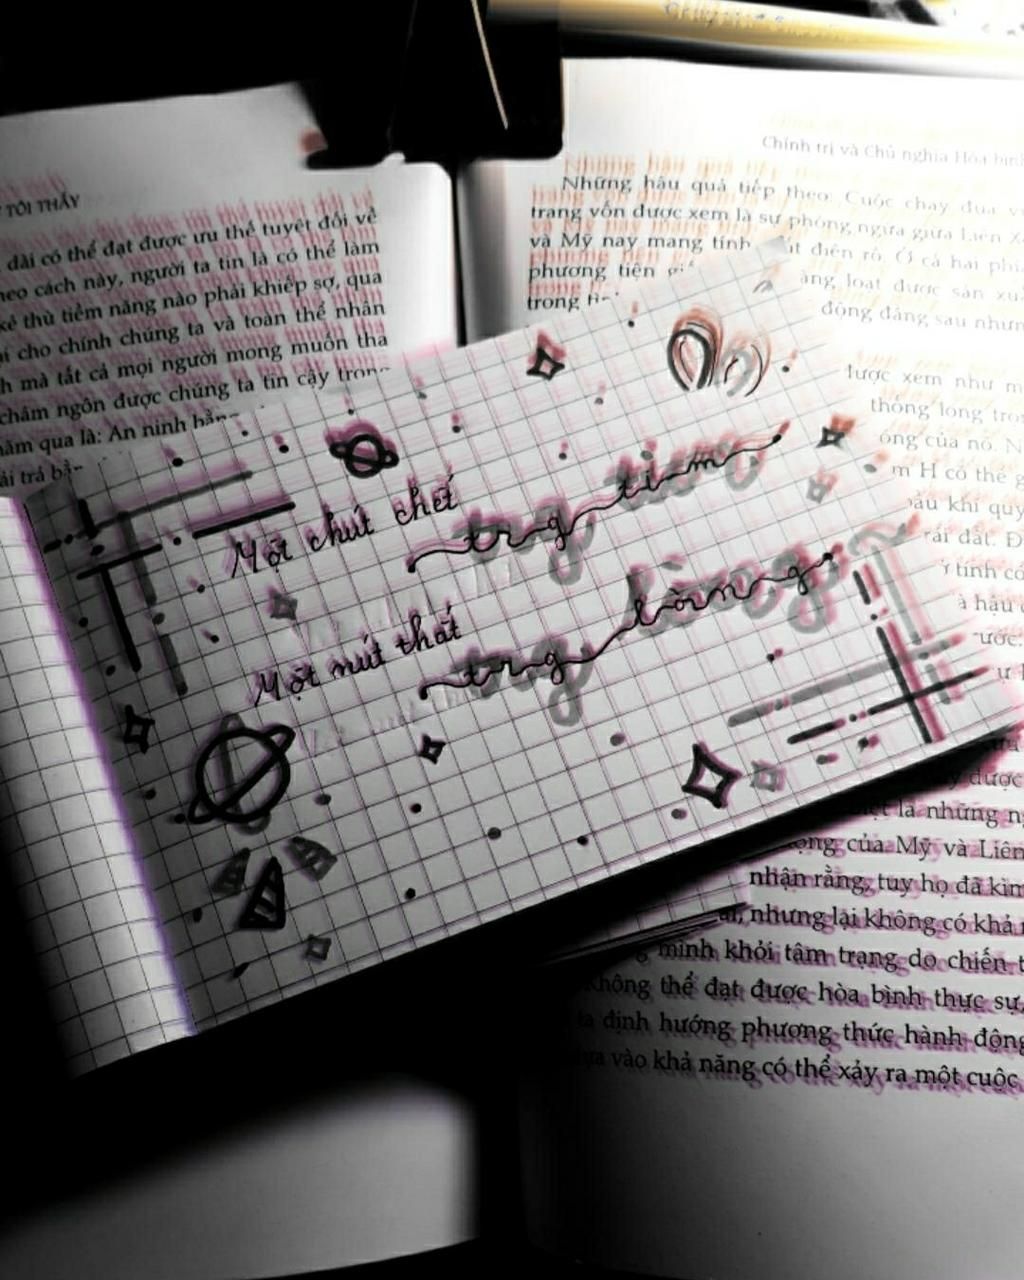 TÔI THẤY
đài có thể đạt được ưu thế tuyệt đối về
heo cách này, người ta tin là có thể làm
kẻ thù tiềm năng nào phải khiếp sợ, qua
cho chính chúng ta và toàn thể nhân
h mà tất cả mọi người mong muốn tha
châm ngôn được chúng ta tin cậy trong
năm qua là: An ninh bằng
ải trả bằ
Chính trị và Chủ nghĩa Hòa bình
Những hậu quả tiếp theo: Cuộc chạy đua v
trang vốn được xem là sự phòng ngừa giữa Liên X
và Mỹ nay mang tính điên rồ. Ở cả hai phía
phương tiện gi àng loạt được sản xuấ
trong động đằng sau nhưn
được xem như m
thòng lọng tron
ông của nó. N
m H có thể g
bầu khí quy
rái đất. Đ
tính có
à hậu
ước.
Một chút chết
trg tim
Một nút thắt
trg lòng
được
là những n
ọng của Mỹ và Liên
nhận rằng, tuy họ đã kìm
nhưng lại không có khả
mình khỏi tâm trạng do chiến t
không thể đạt được hòa bình thực sự,
ta định hướng phương thức hành động
vào khả năng có thể xảy ra một cuộc